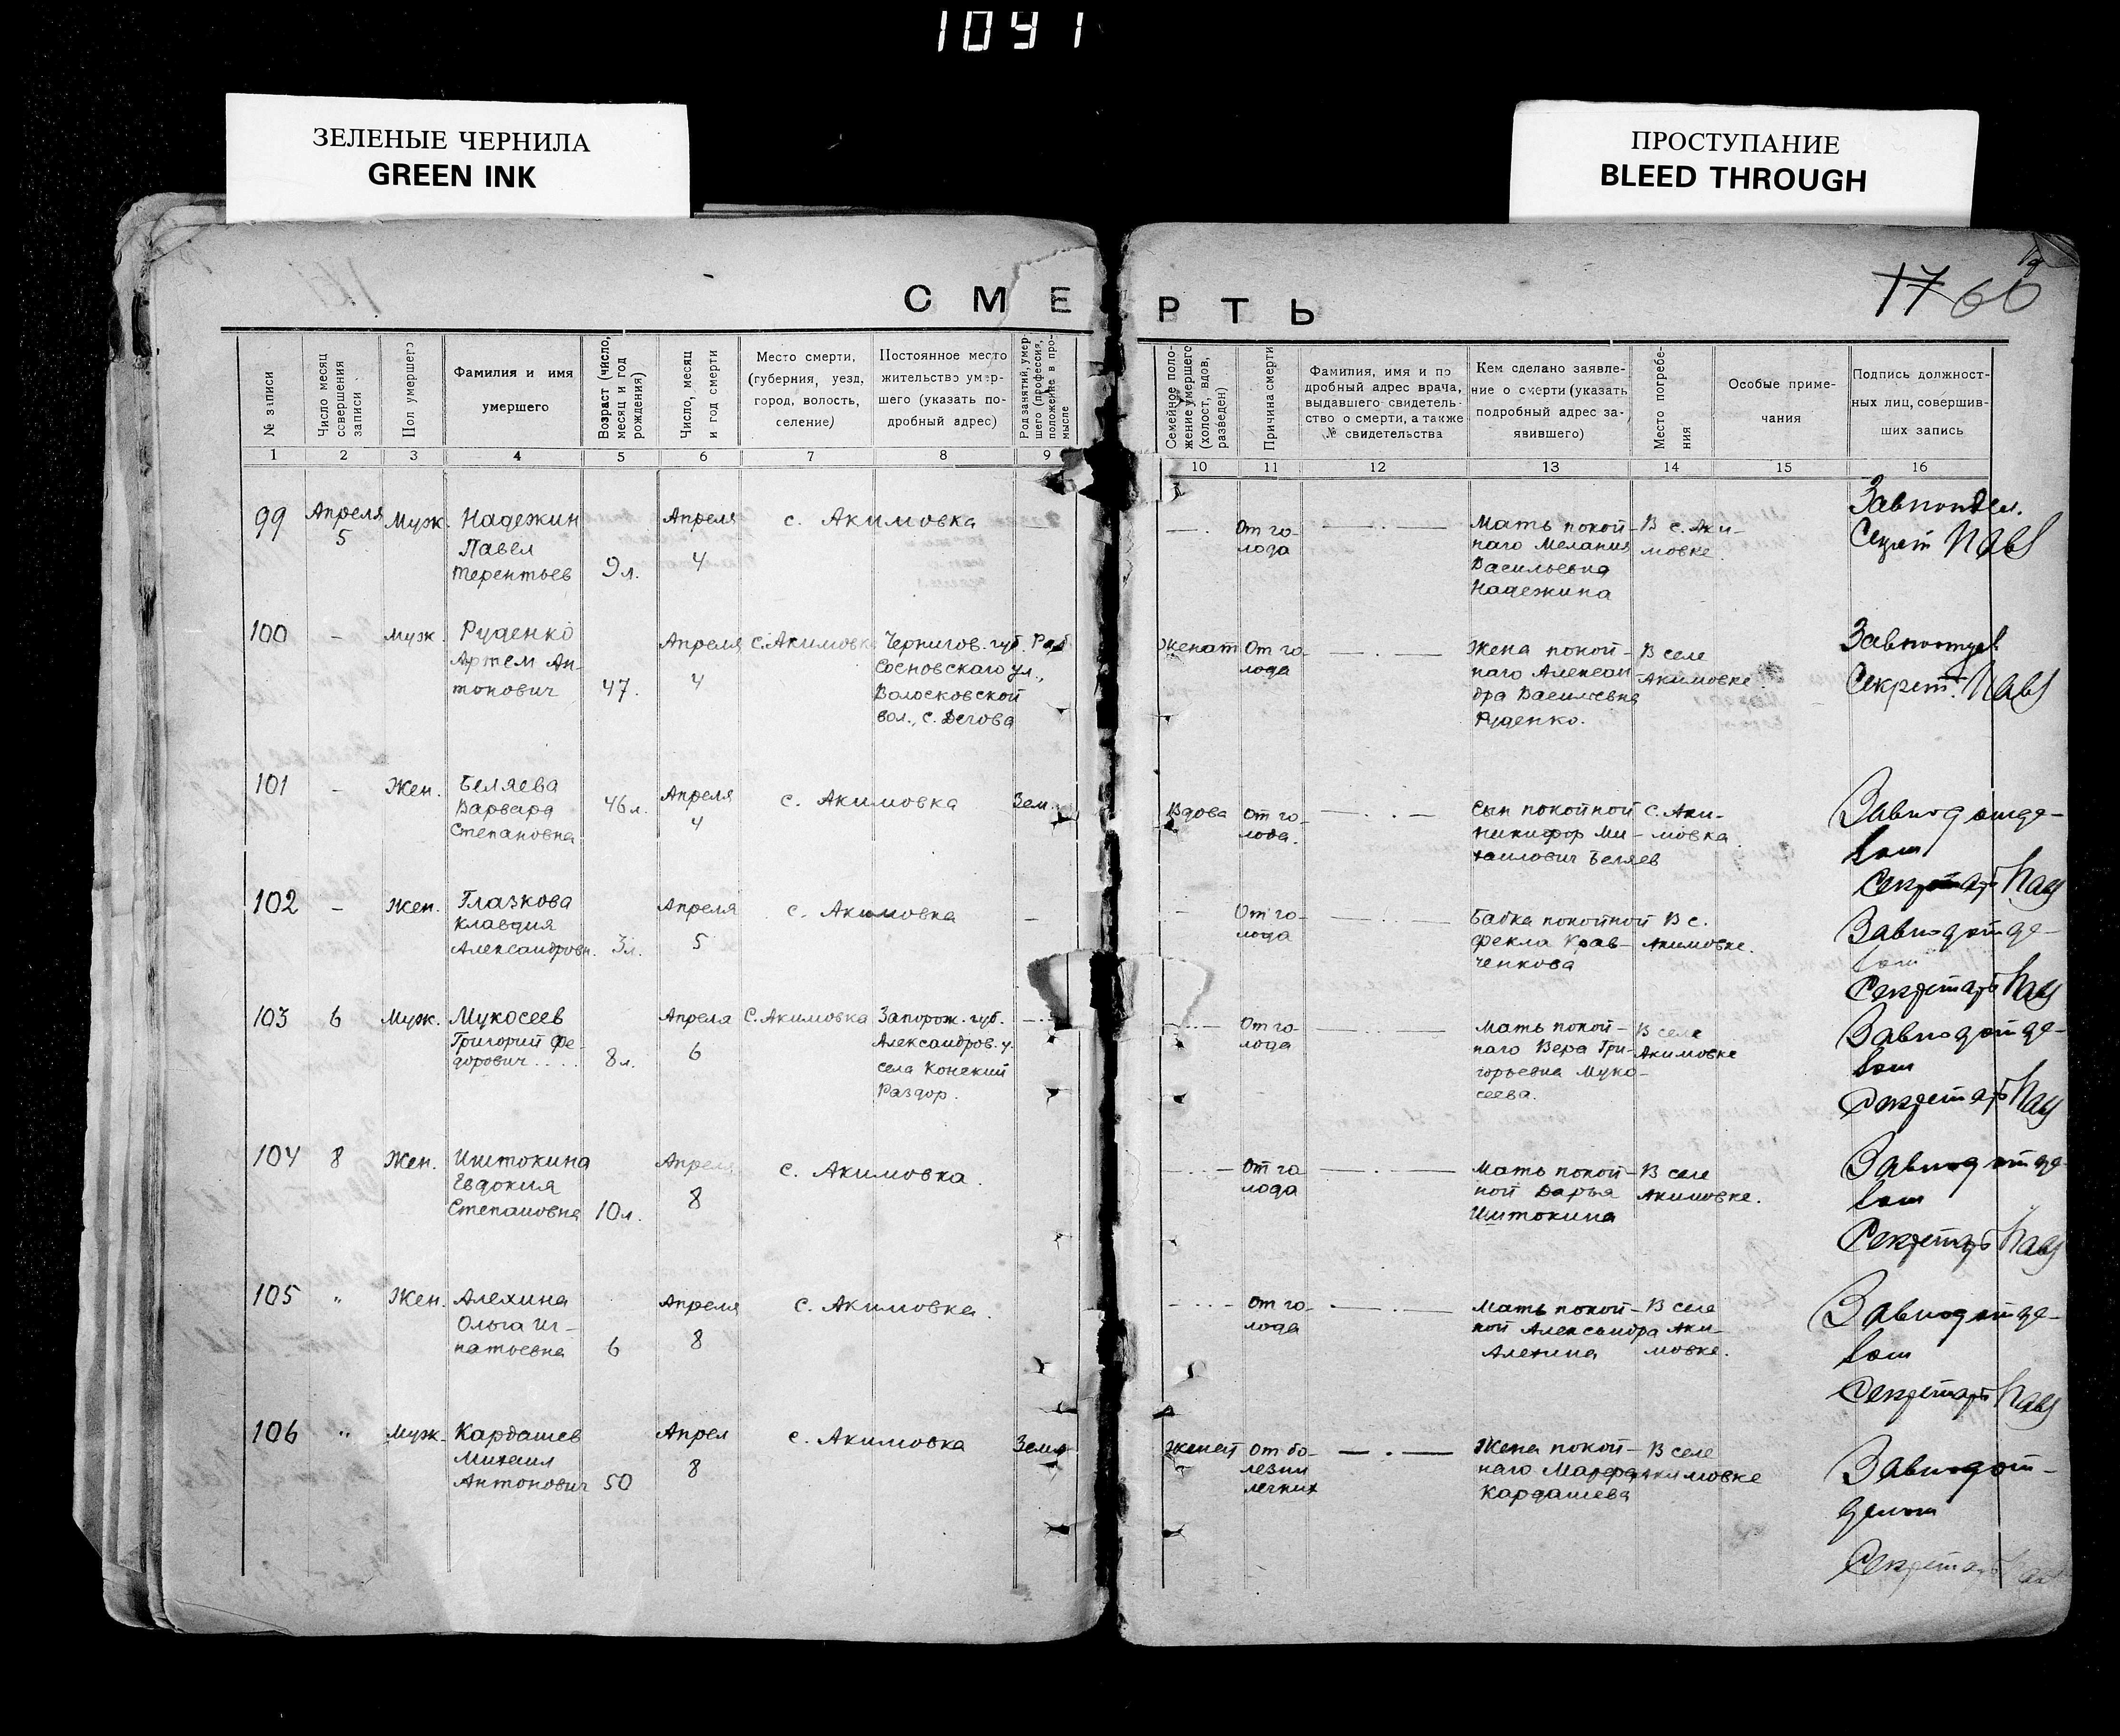 1041
ЗЕЛЕНЫЕ ЧЕРНИЛА
GREEN INK
ПРОСТУПАНИЕ
BLEED THROUGH
17 66
СМЕРТЬ
№ записи
Число месяц совершения записи
Пол умершего
Фамилия и имя умершего
Возраст (число, месяц и год рождения)
Число, месяц и год смерти
Место смерти, (губерния, уезд, город, волость, селение)
Постоянное место жительство умершего (указать подробный адрес)
Род занятий, умершего (профессия, положение в промысле
Семейное положение умершего (холост, вдов, разведен)
Причина смерти
Фамилия, имя и подробный адрес врача, выдавшего свидетельство о смерти, а также № свидетельства
Кем сделано заявление о смерти (указать подробный адрес заявившего)
Место погребения
Особые примечания
Подпись должностных лиц, совершивших запись
1 2 3 4 5 6 7 8 9 10 11 12 13 14 15 16
99 Апреля 5 Муж. Надежин Павел Терентьев 9 л. Апреля 4 с. Акимовка — От голода — Мать покойнаго Мелания Васильевна Надежина В с. Акимовке Секрет
100 — Муж. Руденко Артем Антонович 47. Апреля 4 с. Акимовка Чернигов. губ. Сосновскаго у., Волосковской вол., с. Дегова Раб. Женат От голода — Жена покойнаго Александра Васильевна Руденко. В селе Акимовке Секрет.
101 — Жен. Беляева Варвара Степановна 46 л. Апреля 4 с. Акимовка Зем. Вдова От голода. — Сын покойной Никифор Михаилович Беляев С. Акимовка. Завподотделом Секретарь
102 — Жен. Глазкова Клавдия Александровн. 3 л. Апреля 5 с. Акимовка — От голода — Бабка покойной Фекла Кравченкова В с. Акимовке. Завподотделом Секретарь
103 6 Муж. Мукосеев Григорий Федорович.... 8 л. Апреля 6 С. Акимовка Запорож. губ. Александров. у. села Конский Раздор. — От голода — Мать покойнаго Вера Григорьевна Мукосеева. В селе Акимовке Завподотделом Секретарь
104 8 Жен. Шитокина Евдокия Степановна 10 л. Апреля 8 с. Акимовка. — От голода — Мать покойной Дарья Шитокина В селе Акимовке. Завподотделом Секретарь
105 " Жен. Алехина Ольга Игнатьевна 6 Апреля 8 с. Акимовка. — От голода — Мать покойной Александра Алехина В селе Акимовке. Завподотделом Секретарь
106 " Муж. Кардашев Михаил Антонович 50 Апрел 8 с. Акимовка Земл Женат От болезни легких — Жена покойнаго Марфа Кардашева В селе Акимовке Завподотделом Секретарь